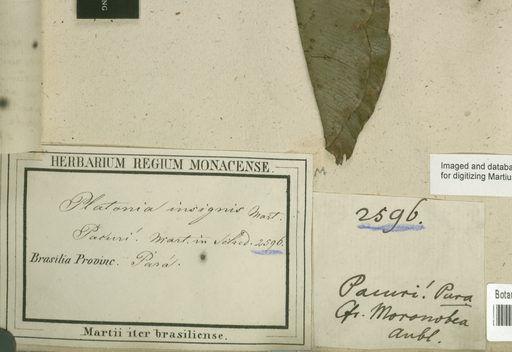 HERBARIUM REGIUM MONACENSE.
Platonia insignis Mart.
Pacuri. Mart. in Sched. 2596.
Brasilia Provinc. Pará.
Martii iter brasiliense.
M
Imaged and databa
for digitizing Martiu
2596.
Pacuri! Para
Cfr. Moronobea
aubl.
Botan